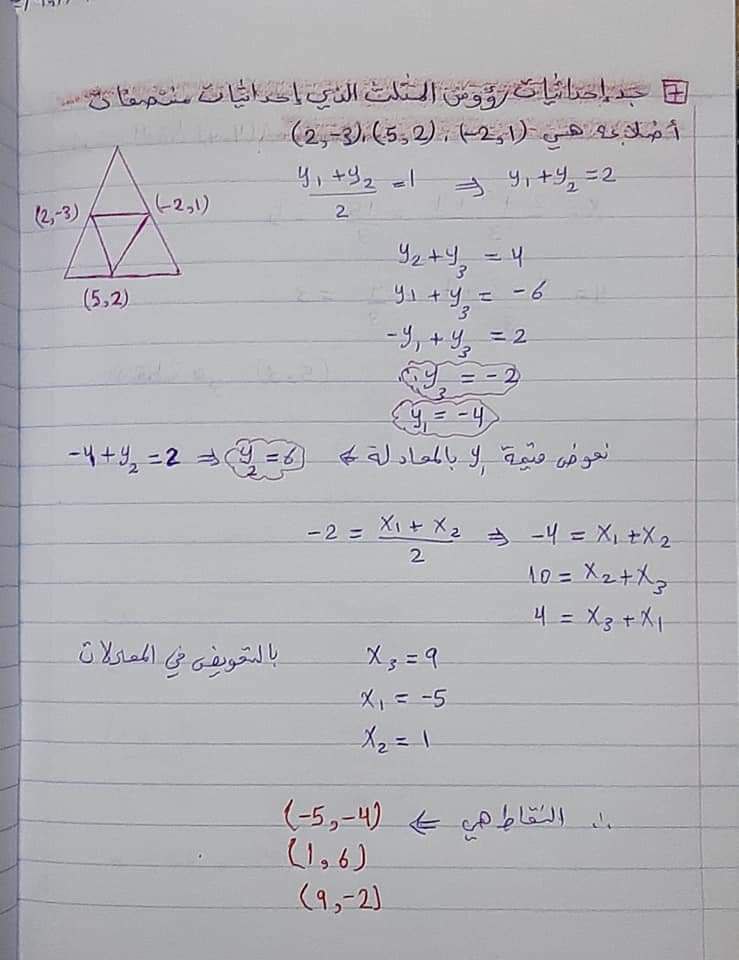 جد إحداثيات رؤوس المثلث الذي إحداثيات منتصفات
أضلاعه هي (-2,1)، (5,2)، (2,-3)
(2,-3)
(-2,1)
(5,2)
y₁ + y₂ / 2 = 1 ⇒ y₁ + y₂ = 2
y₂ + y₃ = 4
y₁ + y₃ = -6
-y₁ + y₃ = 2
∴ y₃ = -2
y₁ = -4
نعوض قيمة y₁ بالمعادلة ⇐ -4 + y₂ = 2 ⇒ y₂ = 6
-2 = x₁ + x₂ / 2 ⇒ -4 = x₁ + x₂
10 = x₂ + x₃
4 = x₃ + x₁
بالتعويض في المعادلات x₃ = 9
x₁ = -5
x₂ = 1
∴ النقاط هي ⇐ (-5,-4)
(1,6)
(9,-2)